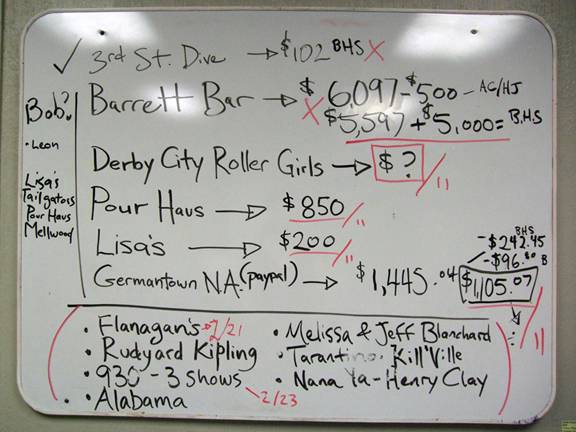 ✓ 3rd St. Dive → $102 BHS X
Barrett Bar → $6,097 - $500 - AC/HJ
X $5,597 + $5,000 = B.H.S
Derby City Roller Girls → $ ?
Pour Haus → $850
Lisa's → $200
Germantown N.A. (paypal) → $1,445.04
BHS
- $242.45
- $96.80 B
$1,105.07
Bob?
• Leon
Lisa's
Tailgators
Pour Haus
Mellwood
• Flanagan's → 2/21
• Rudyard Kipling
• 930 - 3 shows
• Alabama 2/23
• Melissa & Jeff Blanchard
• Tarantino. Kill'Ville
• Nana Ya - Henry Clay